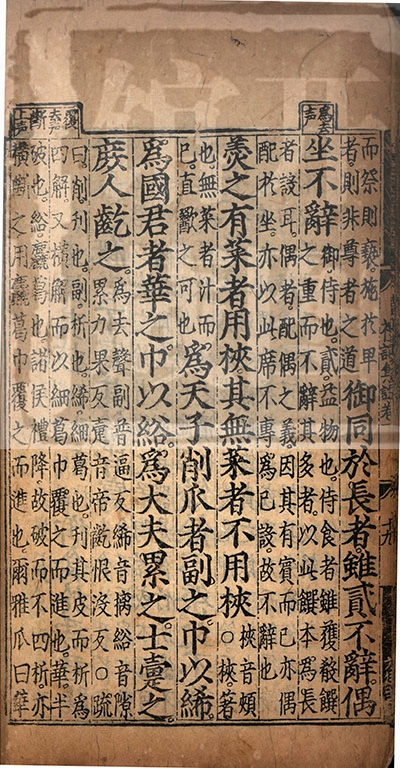 爲去声
而祭則䙝施於卑
者則非尊者之道
御同於長者雖貳不辭偶
坐不辭
御侍也貳益物也侍食者雖獲殽饌
之重而不辭其多者以此饌本爲長
者設耳偶者配偶之義因其有賓而已亦偶
配於坐亦以此席不專爲已設故不辭也
羹之有菜者用梜其無菜者不用梜
○梜音頰
梜箸
也無菜者汁而
已直歠之可也
爲天子削瓜者副之巾以絺
爲國君者華之巾以綌爲大夫累之士疐之
庶人齕之
爲去聲副普逼反絺音摛綌音隙
累力果反疐音帝齕恨沒反○疏
覆去声
斷上声
曰削刋也副析也絺細葛也刋其皮而析爲
四解又橫解而以細葛巾覆之而進也華半
破也綌麤葛也諸侯禮降故破而不四析亦
橫斷之用麤葛巾覆之而進也爾雅瓜曰華